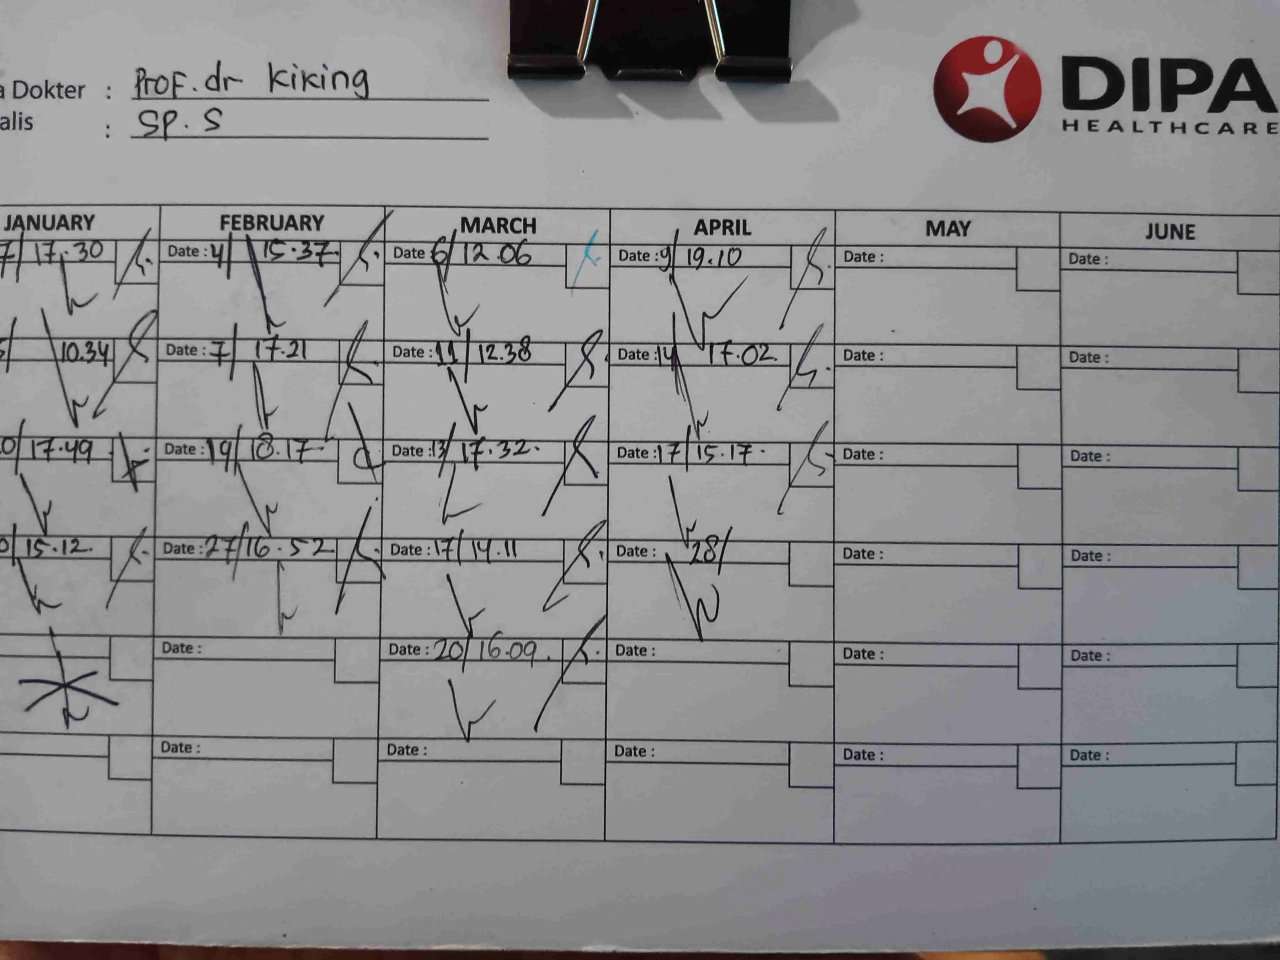 a Dokter : Prof. dr Kiking
alis : SP. S
DIPA
HEALTHCARE
JANUARY FEBRUARY MARCH APRIL MAY JUNE
7/ 17.30 Date : 4/ 15.37 Date 6/ 12.06 Date : 9/ 19.10 Date : Date :
/ 10.34 Date : 7/ 17.21 Date : 11/ 12.38 Date : 14/ 17.02 Date : Date :
0/ 17.49 Date : 19/ 18.17 Date : 13/ 17.32 Date : 17/ 15.17 Date : Date :
0/ 15.12 Date : 27/ 16.52 Date : 17/ 14.11 Date : 28/ Date : Date :
Date : Date : 20/ 16.09 Date : Date : Date :
Date : Date : Date : Date : Date :